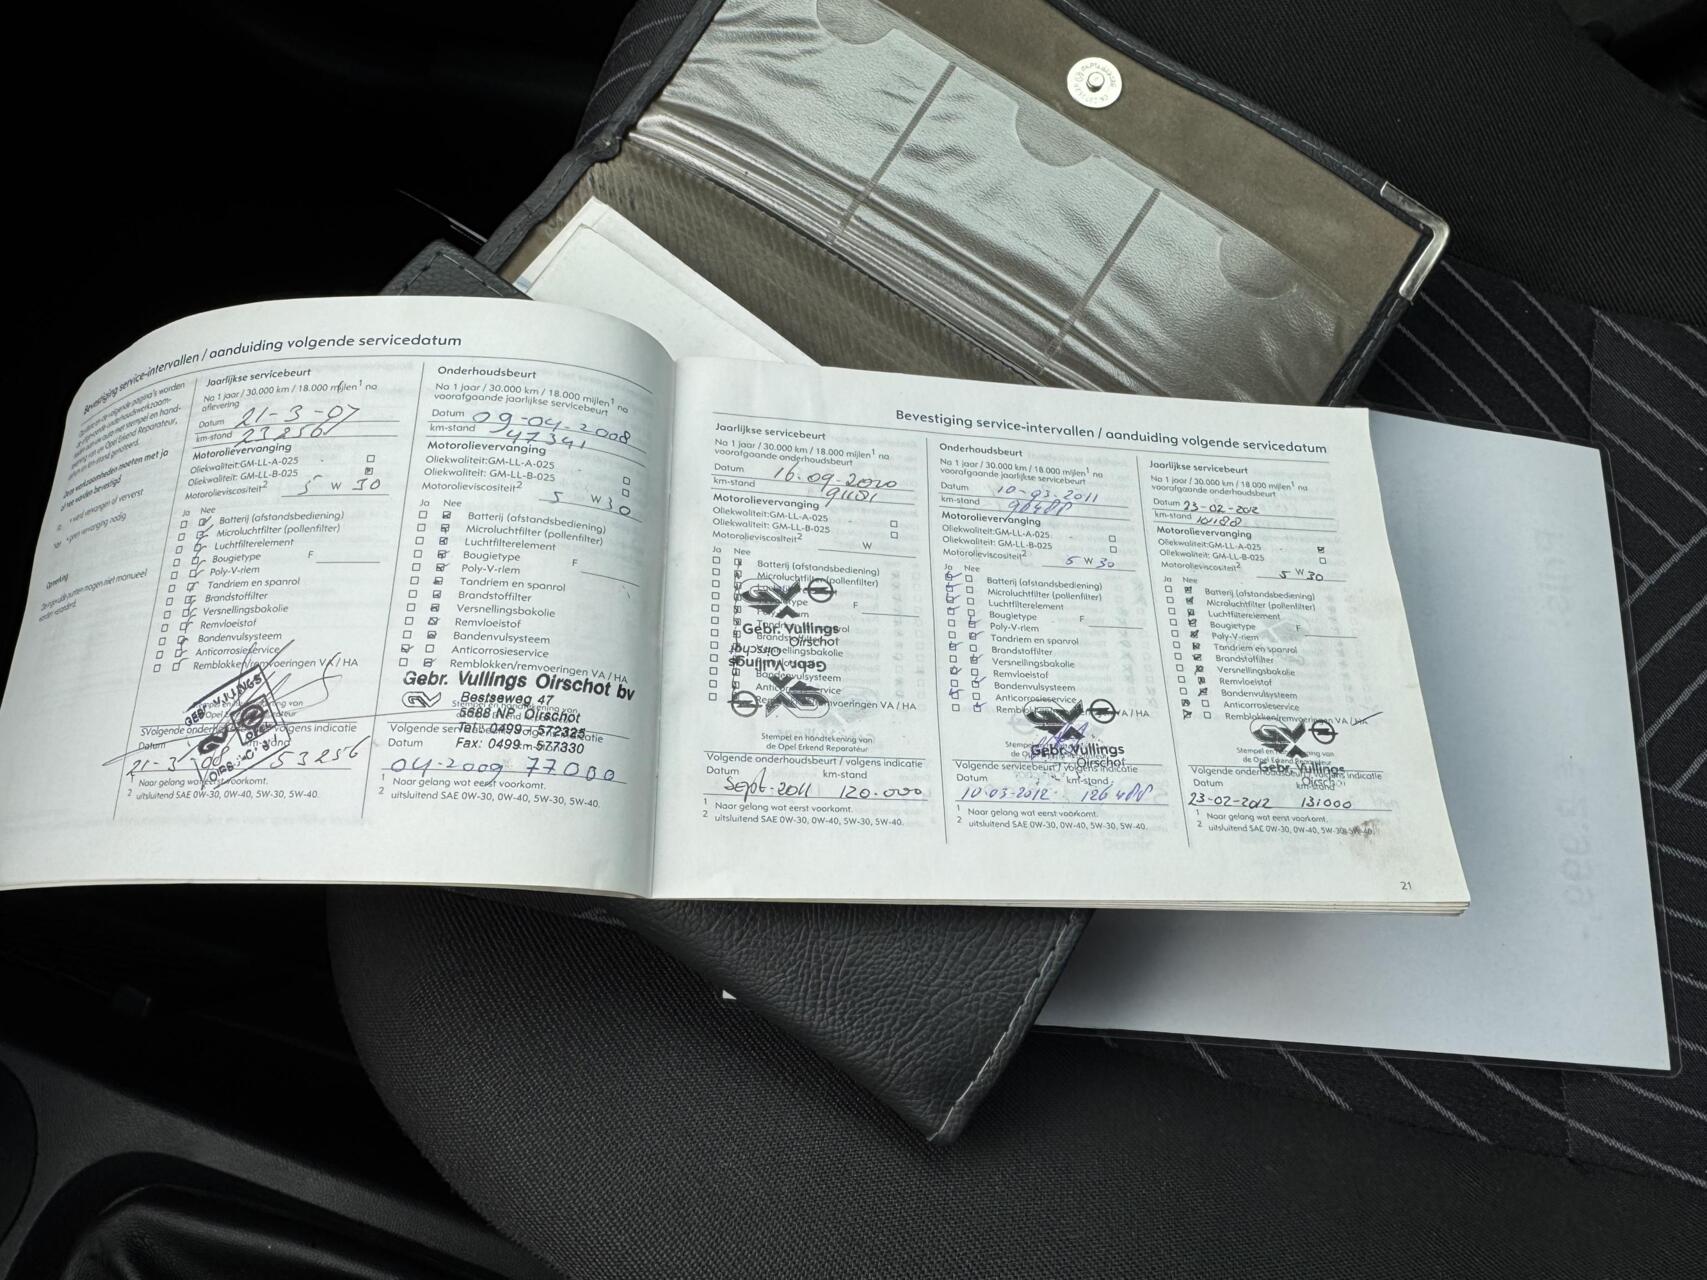 Bevestiging service-intervallen / aanduiding volgende servicedatum
Jaarlijkse servicebeurt
Na 1 jaar / 30.000 km / 18.000 mijlen¹ na
aflevering
Datum 21-3-07
km-stand 23256
Motorolievervanging
Oliekwaliteit: GM-LL-A-025
Oliekwaliteit: GM-LL-B-025
Motorolieviscositeit² 5 W 30
Ja Nee
Batterij (afstandsbediening)
Microluchtfilter (pollenfilter)
Luchtfilterelement
Bougietype F
Poly-V-riem
Tandriem en spanrol
Brandstoffilter
Versnellingsbakolie
Remvloeistof
Bandenvulsysteem
Anticorrosieservice
Remblokken/remvoeringen VA / HA
Datum km-stand
21-3-08 53256
¹ Naar gelang wat eerst voorkomt.
² uitsluitend SAE 0W-30, 0W-40, 5W-30, 5W-40.
Onderhoudsbeurt
Na 1 jaar / 30.000 km / 18.000 mijlen¹ na
voorafgaande jaarlijkse servicebeurt
Datum 09-04-2008
km-stand 47341
Motorolievervanging
Oliekwaliteit: GM-LL-A-025
Oliekwaliteit: GM-LL-B-025
Motorolieviscositeit² 5 W 30
Ja Nee
Batterij (afstandsbediening)
Microluchtfilter (pollenfilter)
Luchtfilterelement
Bougietype F
Poly-V-riem
Tandriem en spanrol
Brandstoffilter
Versnellingsbakolie
Remvloeistof
Bandenvulsysteem
Anticorrosieservice
Remblokken/remvoeringen VA / HA
Gebr. Vullings Oirschot bv
Bestseweg 47
5688 NP Oirschot
Tel. 0499 - 572325
Fax: 0499 - 577330
Datum
04-2009 77000
¹ Naar gelang wat eerst voorkomt.
² uitsluitend SAE 0W-30, 0W-40, 5W-30, 5W-40.
Bevestiging service-intervallen / aanduiding volgende servicedatum
Jaarlijkse servicebeurt
Na 1 jaar / 30.000 km / 18.000 mijlen¹ na
voorafgaande onderhoudsbeurt
Datum 16-09-2010
km-stand 91181
Motorolievervanging
Oliekwaliteit: GM-LL-A-025
Oliekwaliteit: GM-LL-B-025
Motorolieviscositeit² W
Ja Nee
Batterij (afstandsbediening)
Microluchtfilter (pollenfilter)
F
Gebr. Vullings
Oirschot
Gebr. Vullings
Oirschot
Stempel en handtekening van
de Opel Erkend Reparateur
Volgende onderhoudsbeurt / volgens indicatie
Datum km-stand
Sept-2011 120.000
¹ Naar gelang wat eerst voorkomt.
² uitsluitend SAE 0W-30, 0W-40, 5W-30, 5W-40.
Onderhoudsbeurt
Na 1 jaar / 30.000 km / 18.000 mijlen¹ na
voorafgaande jaarlijkse servicebeurt
Datum 10-03-2011
km-stand 96488
Motorolievervanging
Oliekwaliteit: GM-LL-A-025
Oliekwaliteit: GM-LL-B-025
Motorolieviscositeit² 5 W 30
Ja Nee
Batterij (afstandsbediening)
Microluchtfilter (pollenfilter)
Luchtfilterelement
Bougietype F
Poly-V-riem
Tandriem en spanrol
Brandstoffilter
Versnellingsbakolie
Remvloeistof
Bandenvulsysteem
Anticorrosieservice
VA / HA
Gebr. Vullings
Oirschot
Volgende servicebeurt / volgens indicatie
Datum km-stand
10-03-2012 126488
¹ Naar gelang wat eerst voorkomt.
² uitsluitend SAE 0W-30, 0W-40, 5W-30, 5W-40.
Jaarlijkse servicebeurt
Na 1 jaar / 30.000 km / 18.000 mijlen¹ na
voorafgaande onderhoudsbeurt
Datum 23-02-2012
km-stand 101188
Motorolievervanging
Oliekwaliteit: GM-LL-A-025
Oliekwaliteit: GM-LL-B-025
Motorolieviscositeit² 5 W 30
Ja Nee
Batterij (afstandsbediening)
Microluchtfilter (pollenfilter)
Luchtfilterelement
Bougietype F
Poly-V-riem
Tandriem en spanrol
Brandstoffilter
Versnellingsbakolie
Remvloeistof
Bandenvulsysteem
Anticorrosieservice
Remblokken/remvoeringen VA / HA
Stempel en handtekening van
Gebr. Vullings
Volgende onderhoudsbeurt / volgens indicatie
Datum km-stand
23-02-2012 131000
¹ Naar gelang wat eerst voorkomt.
² uitsluitend SAE 0W-30, 0W-40, 5W-30, 5W-40.
21